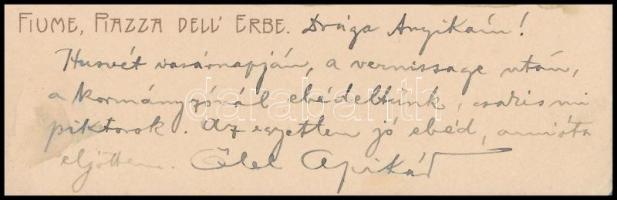 FIUME, PIAZZA DELL' ERBE. Drága Anyikám!
Husvét vasárnapján, a vernissage után,
a kormányzónál ebédeltünk, csakis mi
piktorok. Az egyetlen jó ebéd, amióta
eljöttem. Ölel Apikád